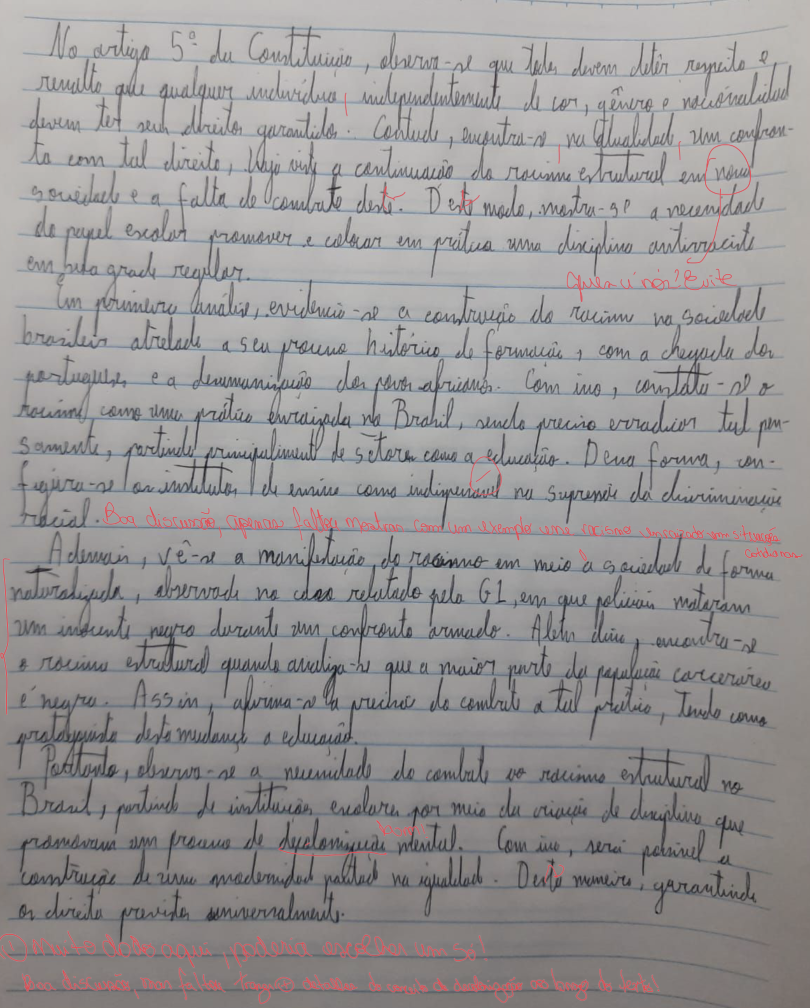 No artigo 5º da Constituição, observa-se que todos devem deter respeito e,
ressalto que qualquer indivíduo, independentemente de cor, gênero e nacionalidad
devem ter seus direitos garantidos. Contudo, encontra-se, na atualidade, um confron-
to com tal direito, haja vista a continuação do racismo estrutural em nossa
sociedade e a falta de combate deste. Deste modo, mostra-se a necessidade
do papel escolar promover e colocar em prática uma disciplina antirracista
em sua grade regular.
quem é nós? Evite
Em primeira análise, evidencia-se a construção do racismo na sociedade
brasileira atrelado a seu processo histórico de formação, com a chegada dos
portugueses e a desumanização dos povos africanos. Com isso, constata-se o
racismo como uma prática enraizada no Brasil, sendo preciso erradicar tal pen-
samento, partindo principalment de setores como a educação. Dessa forma, con-
figura-se os institutos de ensino como indispensável na supressão da discriminação
racial. Boa discussão, apenas faltou mostrar com um exemplo uma situação
cotidiana
Ademais, vê-se a manifestação do racismo em meio à sociedade de forma
naturalizada, observado no caso relatado pelo G1, em que policiais mataram
um inocente negro durante um confronto armado. Além disso, encontra-se
o racismo estrutural quando analiza-se que a maior parte da população carcerária
é negra. Assim, afirma-se a precisão do combate a tal prática, tendo como
protagonista desta mudança a educação.
Portanto, observa-se a necessidade do combate ao racismo estrutural no
Brasil, partindo de instituições escolares por meio da criação de disciplina que
promovam um processo de descolonização mental. Com isso, será possível a
construção de uma modernidade pautada na igualdade. Desta maneira, garantindo
os direitos previstos universalmente.
Muito dado aqui, poderia escolher um só!
Boa discussão, mas faltou trazer detalhes do sentido de descolonização ao longo do texto!